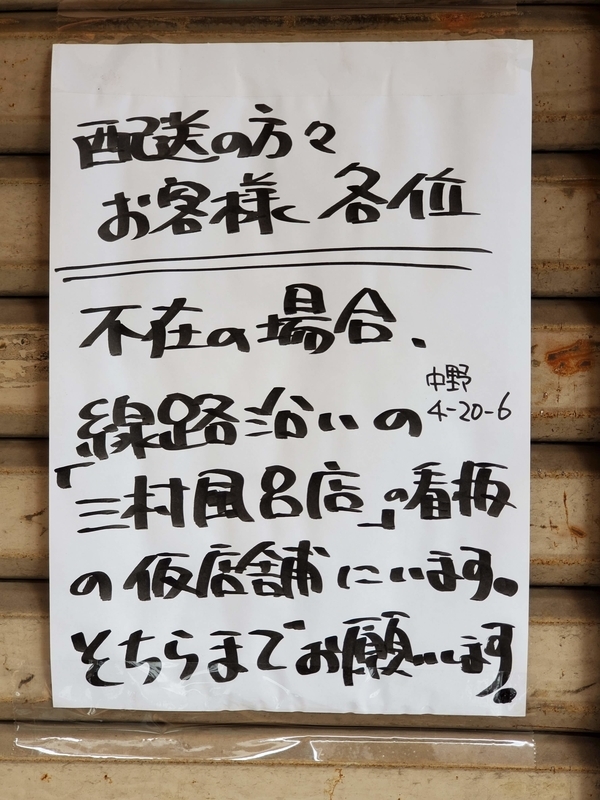 配送の方々
お客様 各位
不在の場合、
線路沿いの
中野
4-20-6
「三村風呂店」の看板
の仮店舗にいます。
そちらまでお願いします。